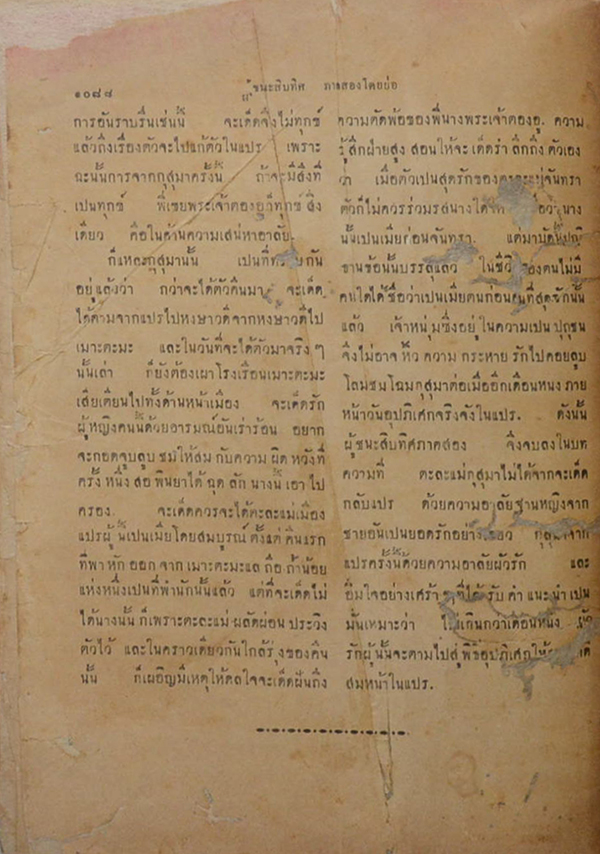 ๑๐๘๘
ผู้ชนะสิบทิศ ภาคสองโดยย่อ
การอันราบรื่นเช่นนี้ จะเด็ดจึงไม่ทุกข์
แล้วถึงเรื่องตัวจะไปแก้ตัวในแปร เพราะ
ฉะนั้นการจากกุสุมาครั้งนี้ ถ้าจะมีสิ่งที่
เป็นทุกข์ พี่เขยพระเจ้าตองอูก็ทุกข์สิ่ง
เดียว คือในด้านความเสน่หาอาลัย.
ก็เหละกุสุมานั้น เป็นที่ทราบกัน
อยู่แล้วว่า กว่าจะได้ตัวคืนมา จะเด็ด
ได้ตามจากแปรไปหงษาวดีจากหงษาวดีไป
เมาะตะมะ และในวันที่จะได้ตัวมาจริง ๆ
นั้นเล่า ก็ยังต้องเผาโรงเรือนเมาะตะมะ
เสียเตียนไปทั้งด้านหน้าเมือง จะเด็ดรัก
ผู้หญิงคนนี้ด้วยอารมณ์อันเร่าร้อน อยาก
จะกอดจูบลูบชมให้สมกับความผิดหวังที่
ครั้งหนึ่งสอพินยาได้ฉุดลักนางนี้เอาไป
ครอง. จะเด็ดควรจะได้ตะละแม่เมือง
แปรผู้นี้เป็นเมียโดยสมบูรณ์ตั้งแต่คืนแรก
ที่พาหักออกจากเมาะตะมะแล ถือถ้ำน้อย
แห่งหนึ่งเป็นที่พำนักนั้นแล้ว แต่ที่จะเด็ดไม่
ได้นางนั้น ก็เพราะตะละแม่ผลัดผ่อนประวิง
ตัวไว้ และในคราวเดียวกันใกล้รุ่งของคืน
นั้น ก็เผอิญมีเหตุให้ดลใจจะเด็ดฝันถึง
ความตัดพ้อของพี่นางพระเจ้าตองอู. ความ
รู้สึกฝ่ายสูง สอนให้จะเด็ดรำลึกถึงตัวเอง
ว่า เมื่อตัวเป็นสุดรักของตะละแม่จันทรา
ตัวก็ไม่ควรร่วมรสนางใด นาง
นั้นเป็นเมียก่อนจันทรา. แต่มาบัดนี้ปณิ
ธานข้อนั้นบรรลุแล้ว ในชีวิตของตนไม่มี
คนใดได้ชื่อว่าเป็นเมียตนก่อนคนที่สุดรักนั้น
แล้ว เจ้าหนุ่มซึ่งอยู่ในความเป็นปุถุชน
จึงไม่อาจหิ้วความกระหายรักไปคอยลูบ
โลมชมโฉมกุสุมาต่อเมื่ออีกเดือนหนึ่ง ภาย
หน้าวันอุปภิเศกจริงจังในแปร. ดังนั้น
ผู้ชนะสิบทิศภาคสอง จึงจบลงในบท
ความที่ ตะละแม่กุสุมาไม่ได้จากจะเด็ด
กลับแปร ด้วยความอาลัยฐานหญิงจาก
ชายอันเป็นยอดรักอย่างเดียว กุสุมาจาก
แปรครั้งนี้ด้วยความอาลัยผัวรัก และ
อิ่มใจอย่างเศร้า ๆ ที่ได้รับคำแนะนำเป็น
มั่นเหมาะว่า ไม่เกินกว่าเดือนหนึ่ง ผัว
รักผู้นั้นจะตามไปสู่พิธีอุปภิเศกให้
สมหน้าในแปร.